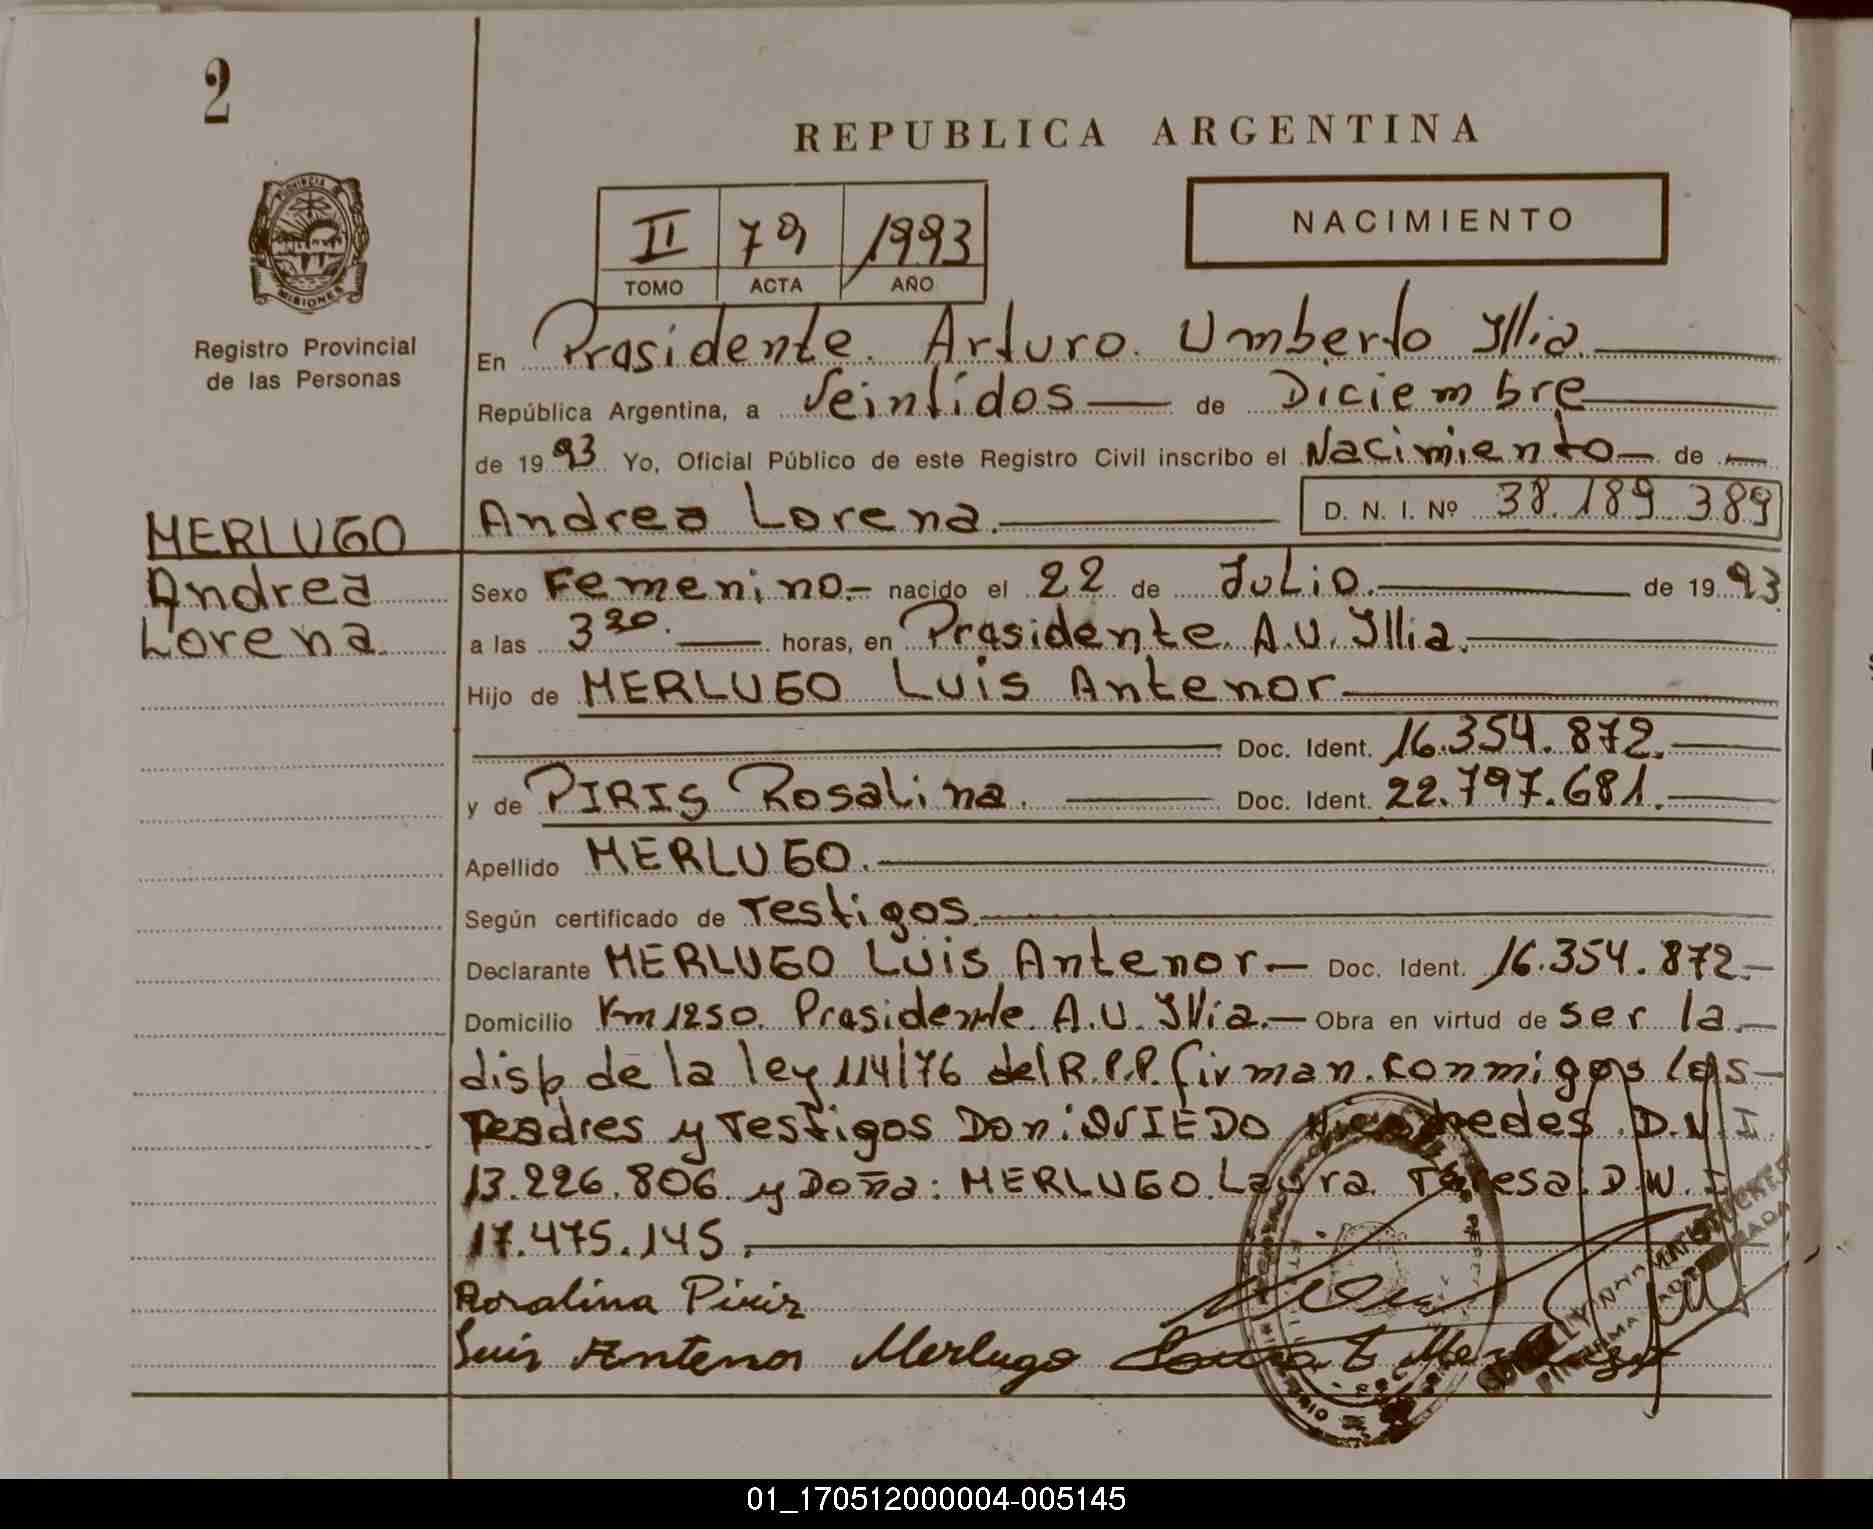 2
REPUBLICA ARGENTINA
PROVINCIA DE
MISIONES
Registro Provincial
de las Personas
II 79 1993
TOMO ACTA AÑO
NACIMIENTO
En Presidente Arturo Umberto Illia.
República Argentina, a Veintidos de Diciembre
de 1993 Yo, Oficial Público de este Registro Civil inscribo el Nacimiento de
Andrea Lorena. D. N. I. Nº 38.189.389
MERLUGO
Andrea
Lorena.
Sexo Femenino.- nacido el 22 de Julio. de 1993
a las 3 20. horas, en Presidente A.U. Illia.
Hijo de MERLUGO Luis Antenor
Doc. Ident. 16.354.872.
y de PIRIS Rosalina. Doc. Ident. 22.797.681.
Apellido MERLUGO.
Según certificado de Testigos.
Declarante MERLUGO Luis Antenor.- Doc. Ident. 16.354.872.-
Domicilio Km 1250. Presidente A.U. Illia.- Obra en virtud de ser la.-
disp de la ley 114/76 del R.P.P. firman conmigos los
Padres y Testigos Don: OVIEDO D.N.I.
13.226.806 y Doña: MERLUGO Laura Teresa D.N.I
17.475.145.
Rosalina Piriz
Luis Antenor Merlugo Laura T Mer
01_170512000004-005145